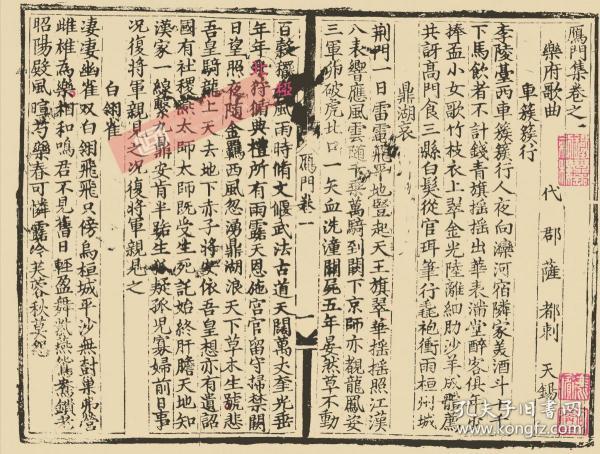 雁門集卷之一
樂府歌曲 代郡薩都剌天錫
車簇簇行
李陵臺西車簇簇行人夜向灤河宿隣家美酒斗
下馬飲者不計錢青旗摇摇出華表滿堂醉客俱
捧盃小女歌竹枝衣上翠金光陸離細肋沙羊成體薦
共訝髙門食三縣白髮從官珥筆行毳袍衝雨桓州城
鼎湖哀
荆門一日雷電飛平地豎起天王旗翠華摇摇照江漢
八表響應風雲隨千乘萬騎到闕下京師亦覩龍鳳姿
三軍卯破虎北口一矢血洗潼關尾五年晏然草不動
雁門卷一
百穀穰穰風雨時脩文偃武法古道天閣萬丈奎光垂
年年北狩循典禮所有雨露天恩施宫官留守掃禁闕
日望照夜隨金羈西風忽湧鼎湖浪天下草木生號悲
吾皇騎龍上天去地下赤子將安依吾皇想亦有遺詔
國有社稷燕太師太師既受生死託始終肝膽天地知
漢家一線繫九鼎安肯半路生嫌疑孤兒寡婦前日事
況復將軍親見之況復將軍親見之
白翎雀
淒淒幽雀雙白翎飛飛只傍烏桓城平沙無樹巢弗營
雌雄為樂相和鳴君不見舊日輕盈舞紫燕鴛鴦鎖老
昭陽殿風暄芍藥春可憐露冷芙蓉秋草怨
孔夫子旧书网